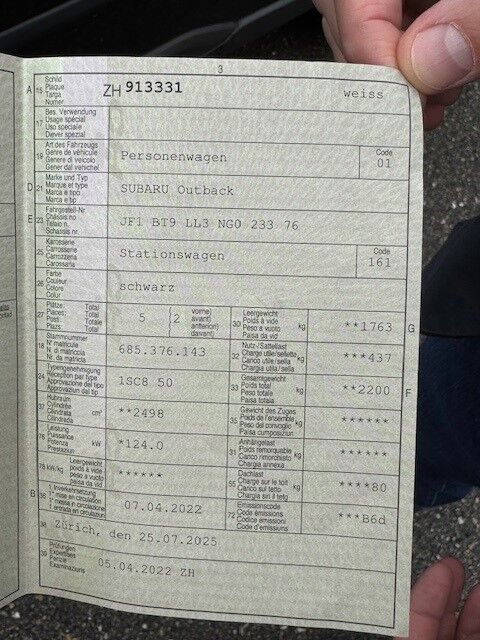 3
A 15 Schild Plaque Targa Numer ZH 913331 weiss
17 Bes. Verwendung Usage spécial Uso speciale Diever spezial
19 Art des Fahrzeugs Genre de véhicule Genere di veicolo Gener dal vehichel Personenwagen Code 01
D 21 Marke und Typ Marque et type Marca e tipo Marca e tip SUBARU Outback
E 23 Fahrgestell-Nr. Châssis no Telaio n. Schassis nr. JF1 BT9 LL3 NG0 233 76
25 Karosserie Carrosserie Carrozzeria Carossaria Stationswagen Code 161
26 Farbe Couleur Colore Colur schwarz
27 Plätze: Total Places: Total Posti: Totale Plazs: Total 5 (2 vorne) avant) anteriori) davant) 30 Leergewicht Poids à vide Peso a vuoto Paisa da vid kg **1763 G
18 Stammnummer N° matricule N. di matricola Nr. da matricla 685.376.143 32 Nutz-/Sattellast Charge utile/sellette Carico utile/sella Chargia utila/sella kg ***437
24 Typengenehmigung Réception par type Approvazione del tipo Approvaziun dal tip 1SC8 50 33 Gesamtgewicht Poids total Peso totale Paisa totala kg **2200 F
37 Hubraum Cylindrée Cilindrata Cilindrada cm³ **2498 35 Gewicht des Zuges Poids de l'ensemble Peso del convoglio Paisa cumposiziun kg ******
76 Leistung Puissance Potenza Prestaziun kW *124.0 31 Anhängelast Poids remorquable Carico rimorchiato Chargia annexa kg ******
78 kW/kg Leergewicht poids à vide peso a vuoto paisa da vid ****** 55 Dachlast Charge sur le toit Carico sul tetto Chargia sin il tetg kg ****80
B 36 1. Inverkehrsetzung 1re mise en circulation 1a messa in circolazione 1. entrada en circulaziun 07.04.2022 72 Emissionscode Code émissions Codice emissioni Code d'emissiuns ***B6d
38 Zürich, den 25.07.2025
39 Prüfungen Expertises Perizie Examinaziuns 05.04.2022 ZH